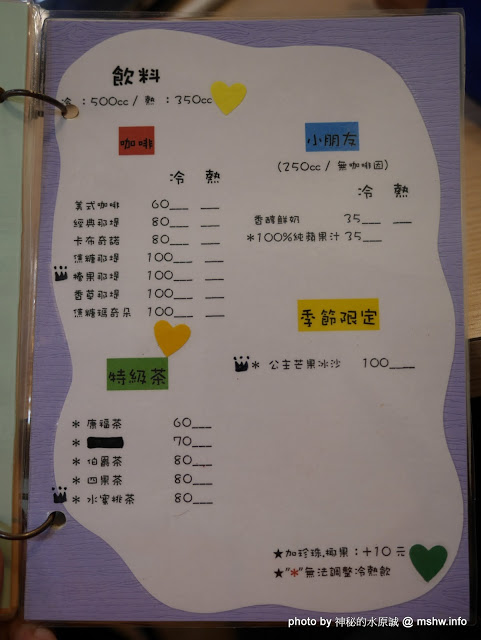 飲料
冷：500cc / 熱：350cc
咖啡
冷 熱
美式咖啡 60___ ___
經典那堤 80___ ___
卡布奇諾 80___ ___
焦糖那堤 100___ ___
榛果那堤 100___ ___
香草那堤 100___ ___
焦糖瑪奇朵 100___ ___
特級茶
＊ 康福茶 60___
＊ 70___
＊ 伯爵茶 80___
＊ 四果茶 80___
＊ 水蜜桃茶 80___
小朋友
(250cc / 無咖啡因)
冷 熱
香醇鮮奶 35___ ___
＊100%純蘋果汁 35___
季節限定
＊ 公主芒果冰沙 100____
★加珍珠.椰果：+10 元
★"＊"無法調整冷熱飲
photo by 神秘的水原誠 @ mshw.info